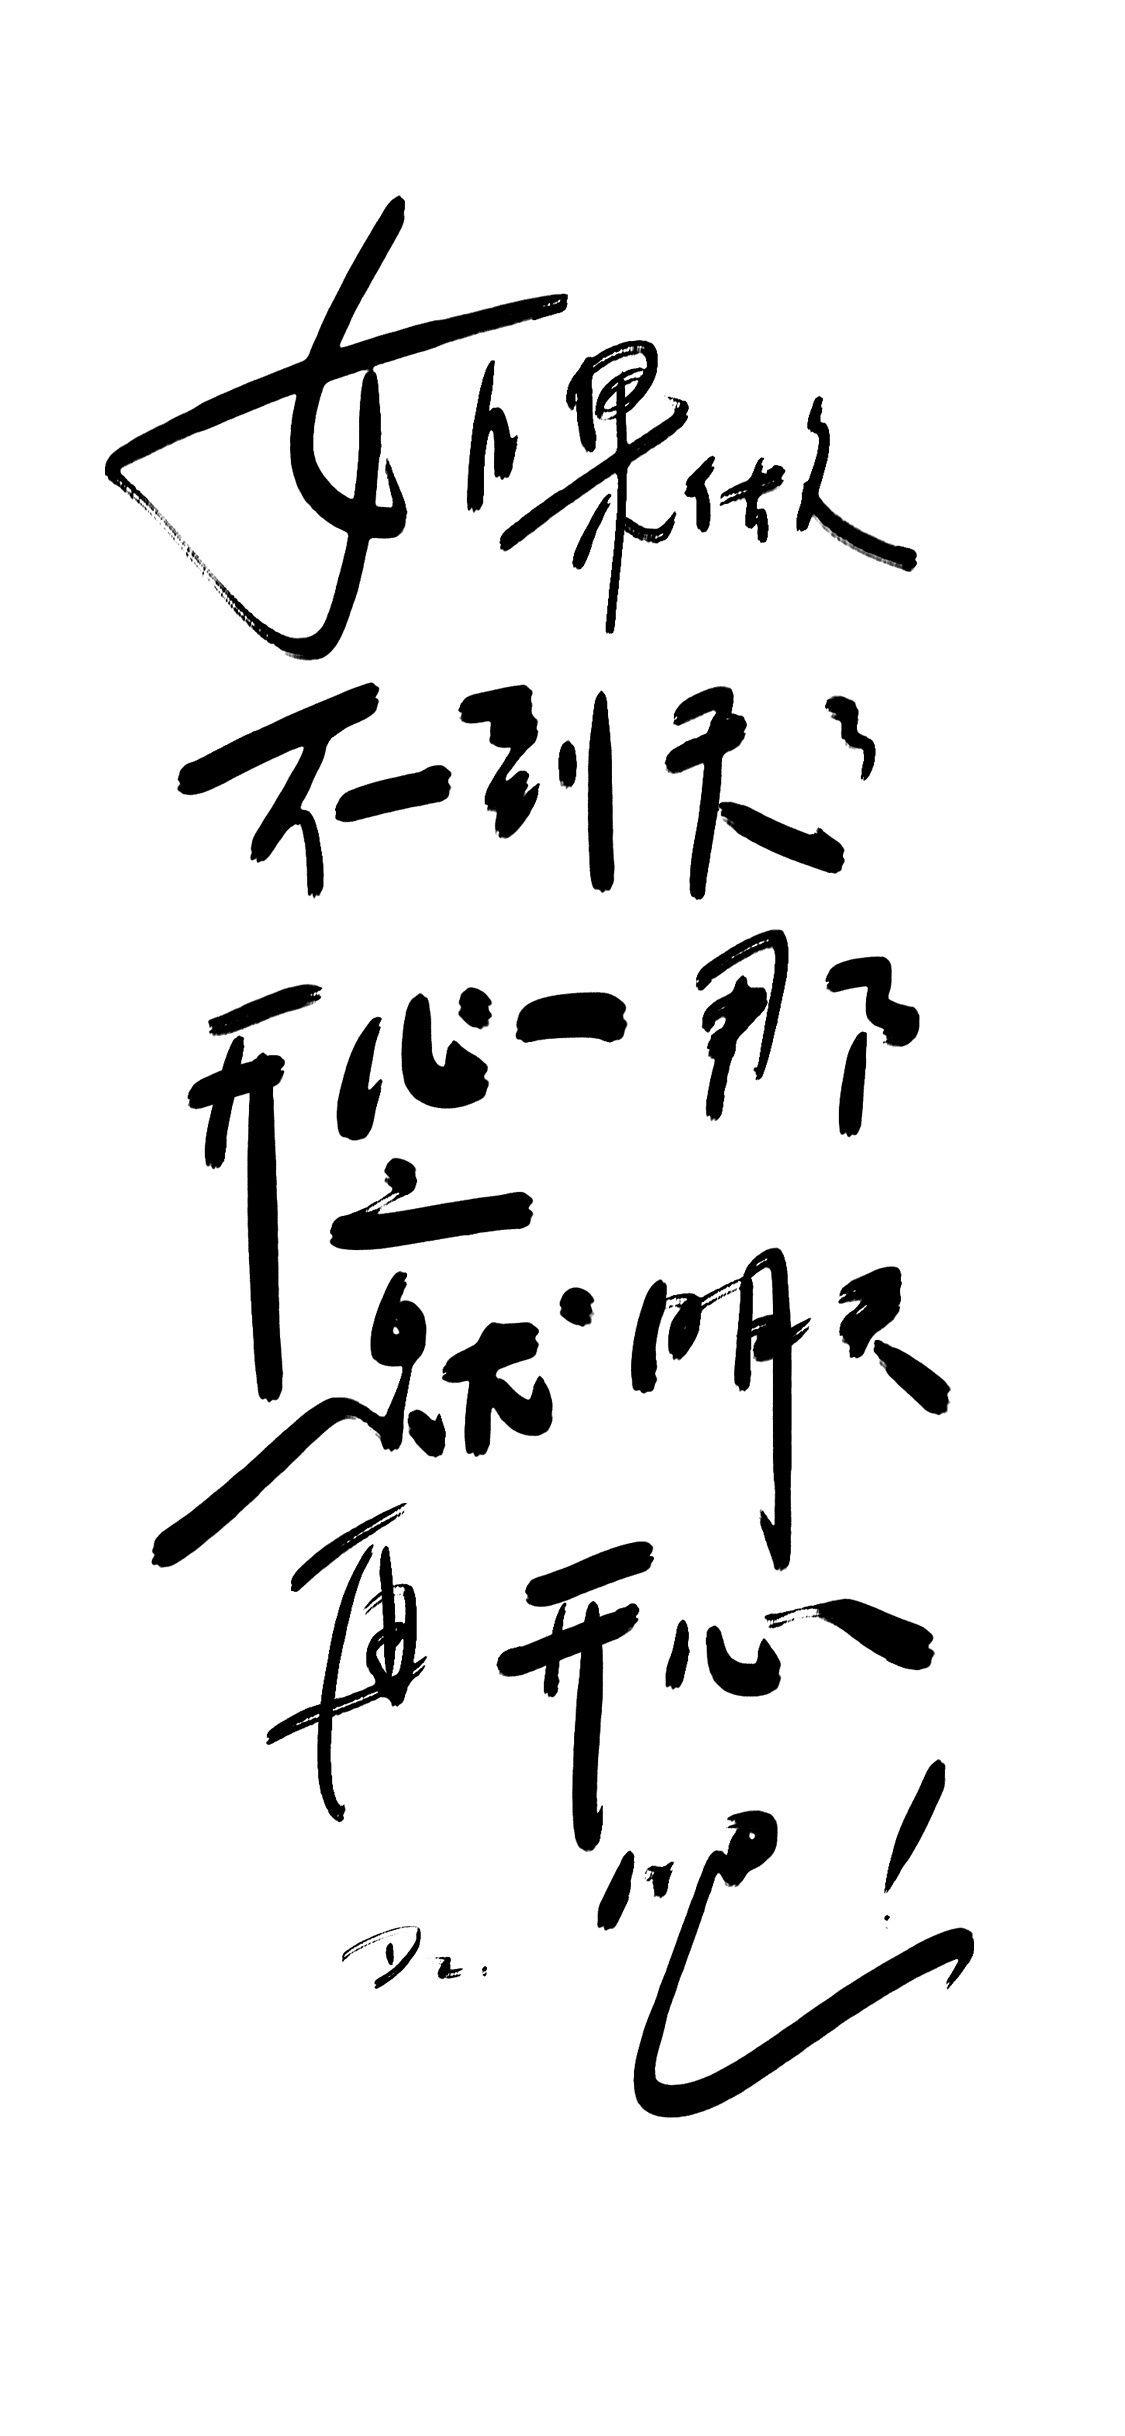 如果做
不到天天
开心一那
就明天
再开心
吧！
Dz.